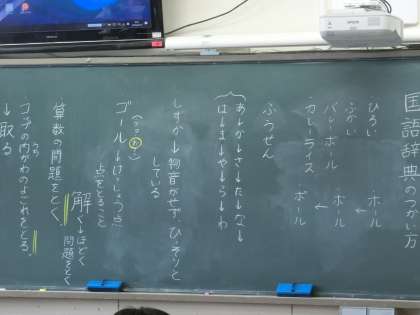 国語辞典のつかい方
ひろい
ふかい
バレーボール
カレーライス
ホール
↓
ボール
↓
ポール
ふうせん
あ→か→さ→た→な→
は→ま→や→ら→わ
しずか→物音がせず、ひっそりと
している
ゴール→けっしょう点
点をとること
算数の問題をとく。
解く→ほどく
問題をとく
コップの内がわのよごれをとる。
↓取る